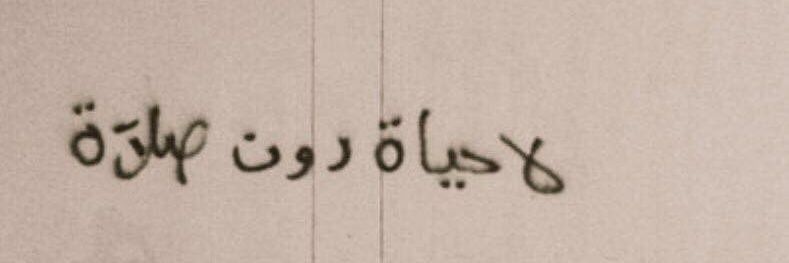 لا حياة دون صلاة